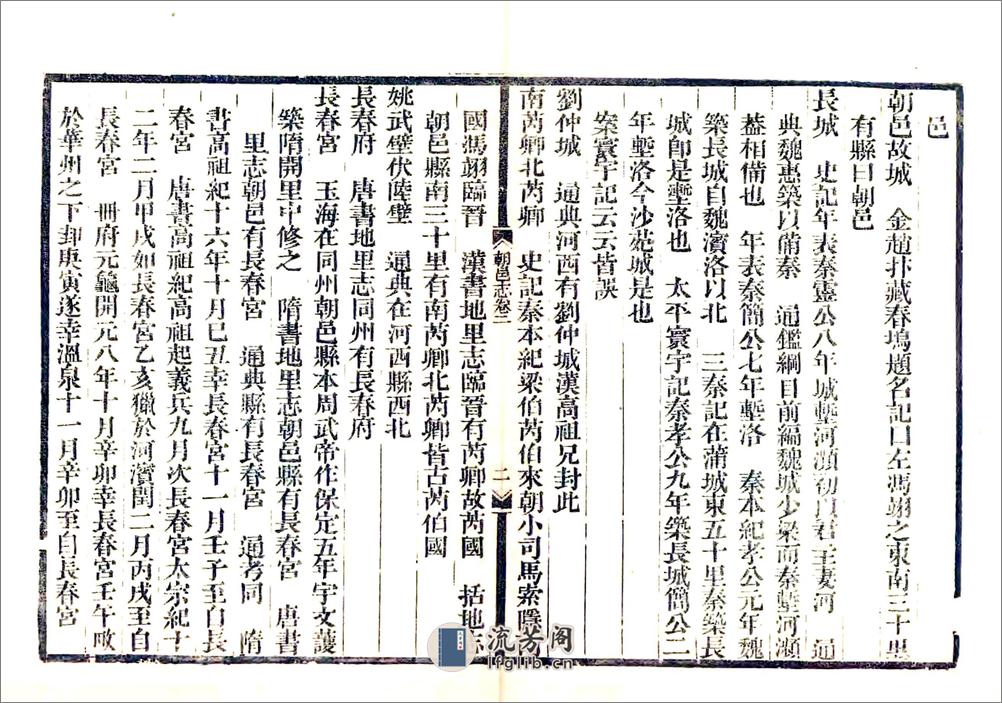 邑
朝邑故城　金趙抃藏春塢題名記曰左馮翊之東南三十里
有縣曰朝邑
長城　史記年表秦靈公八年城塹河瀕初以君主妻河　通
典魏惠築以備秦　通鑑綱目前編魏城少梁而秦塹河瀕
葢相備也　年表秦簡公七年塹洛　秦本紀孝公元年魏
築長城自魏濱洛以北　三秦記在蒲城東五十里秦築長
城卽是壍洛也　太平寰宇記秦孝公九年築長城簡公二
年壍洛今沙苑城是也
案寰宇記云云皆誤
劉仲城　通典河西有劉仲城漢高祖兄封此
南芮鄉北芮鄉　史記秦本紀梁伯芮伯來朝小司馬索隱芮
國馮翊臨晉　漢書地里志臨晉有芮鄉故芮國　括地志
朝邑縣南三十里有南芮鄉北芮鄉皆古芮伯國
朝邑志卷二
二
姚武壁伏陸壁　通典在河西縣西北
長春府　唐書地里志同州有長春府
長春宮　玉海在同州朝邑縣本周武帝作保定五年宇文護
築隋開里中修之　隋書地里志朝邑縣有長春宮　唐書
里志朝邑有長春宮　通典縣有長春宮　通考同　隋
書高祖紀十六年十月己丑幸長春宮十一月壬子至自長
春宮　唐書高祖紀高祖起義兵九月次長春宮太宗紀十
二年二月甲戌如長春宮乙亥獵於河濱閏二月丙戌至自
長春宮　冊府元龜開元八年十月辛卯幸長春宮壬午畋
於華州之下邽庚寅遂幸溫泉十一月辛卯至自長春宮
流芳阁
lfglib.cn